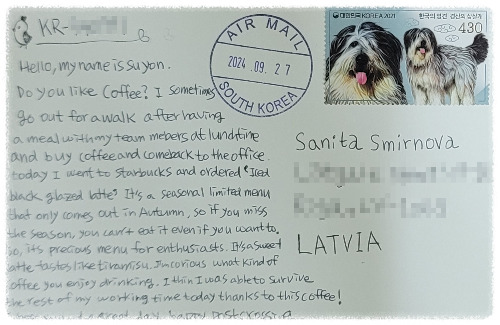 KR-
Hello, my name is Suyon.
Do you like Coffee? I sometimes
go out for a walk after having
a meal with my team mebers at lunchtime
and buy coffee and comeback to the office.
today I went to Starbucks and ordered "Iced
black glazed latte" It's a seasonal limited menu
that only comes out in Autumn, so if you miss
the season, you can't eat it even if you want to.
so, it's precious menu for enthusiasts. It's a sweet
latte tastes like tiramisu. I'm corious what kind of
coffee you enjoy drinking. I thin I was able to survive
the rest of my working time today thanks to this coffee!
great day, happy postcrossing
AIR MAIL
2024.09.27
SOUTH KOREA
대한민국 KOREA 2021
한국의 토종견 경산의 삽살개
430
Sanita Smirnova
LATVIA